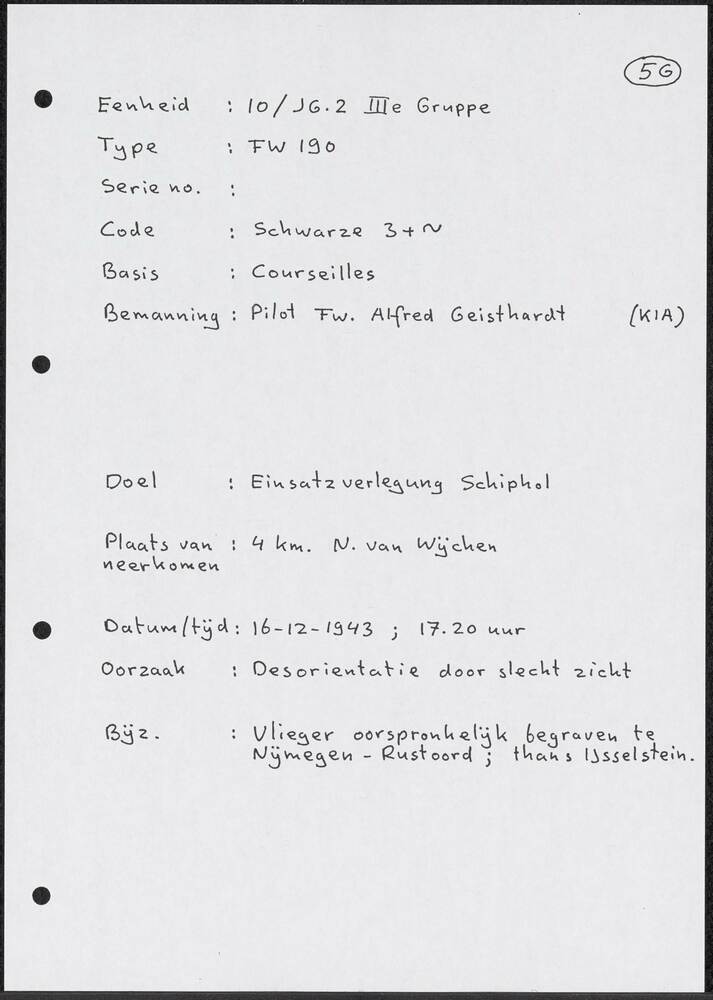 5G
Eenheid : 10/JG.2 IIIe Gruppe
Type : FW 190
Serie no. :
Code : Schwarze 3+~
Basis : Courseilles
Bemanning : Pilot Fw. Alfred Geisthardt (KIA)
Doel : Einsatzverlegung Schiphol
Plaats van : 4 km. N. van Wijchen
neerkomen
Datum/tijd : 16-12-1943 ; 17.20 uur
Oorzaak : Desorientatie door slecht zicht
Bijz. : Vlieger oorspronkelijk begraven te
Nijmegen - Rustoord ; thans IJsselstein.